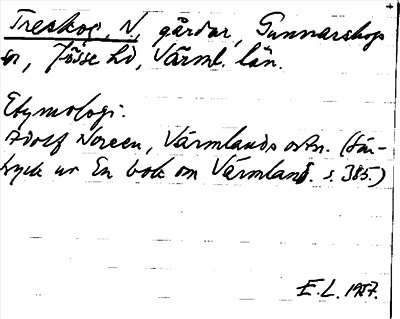 Treskog, N, gårdar, Gunnarskogs
sn, Jösse hd, Värml. län.
Etymologi.
Adolf Noreen, Värmlands ortn. (Sär-
tryck ur En bok om Värmland. s. 385)
E.L. 1957.